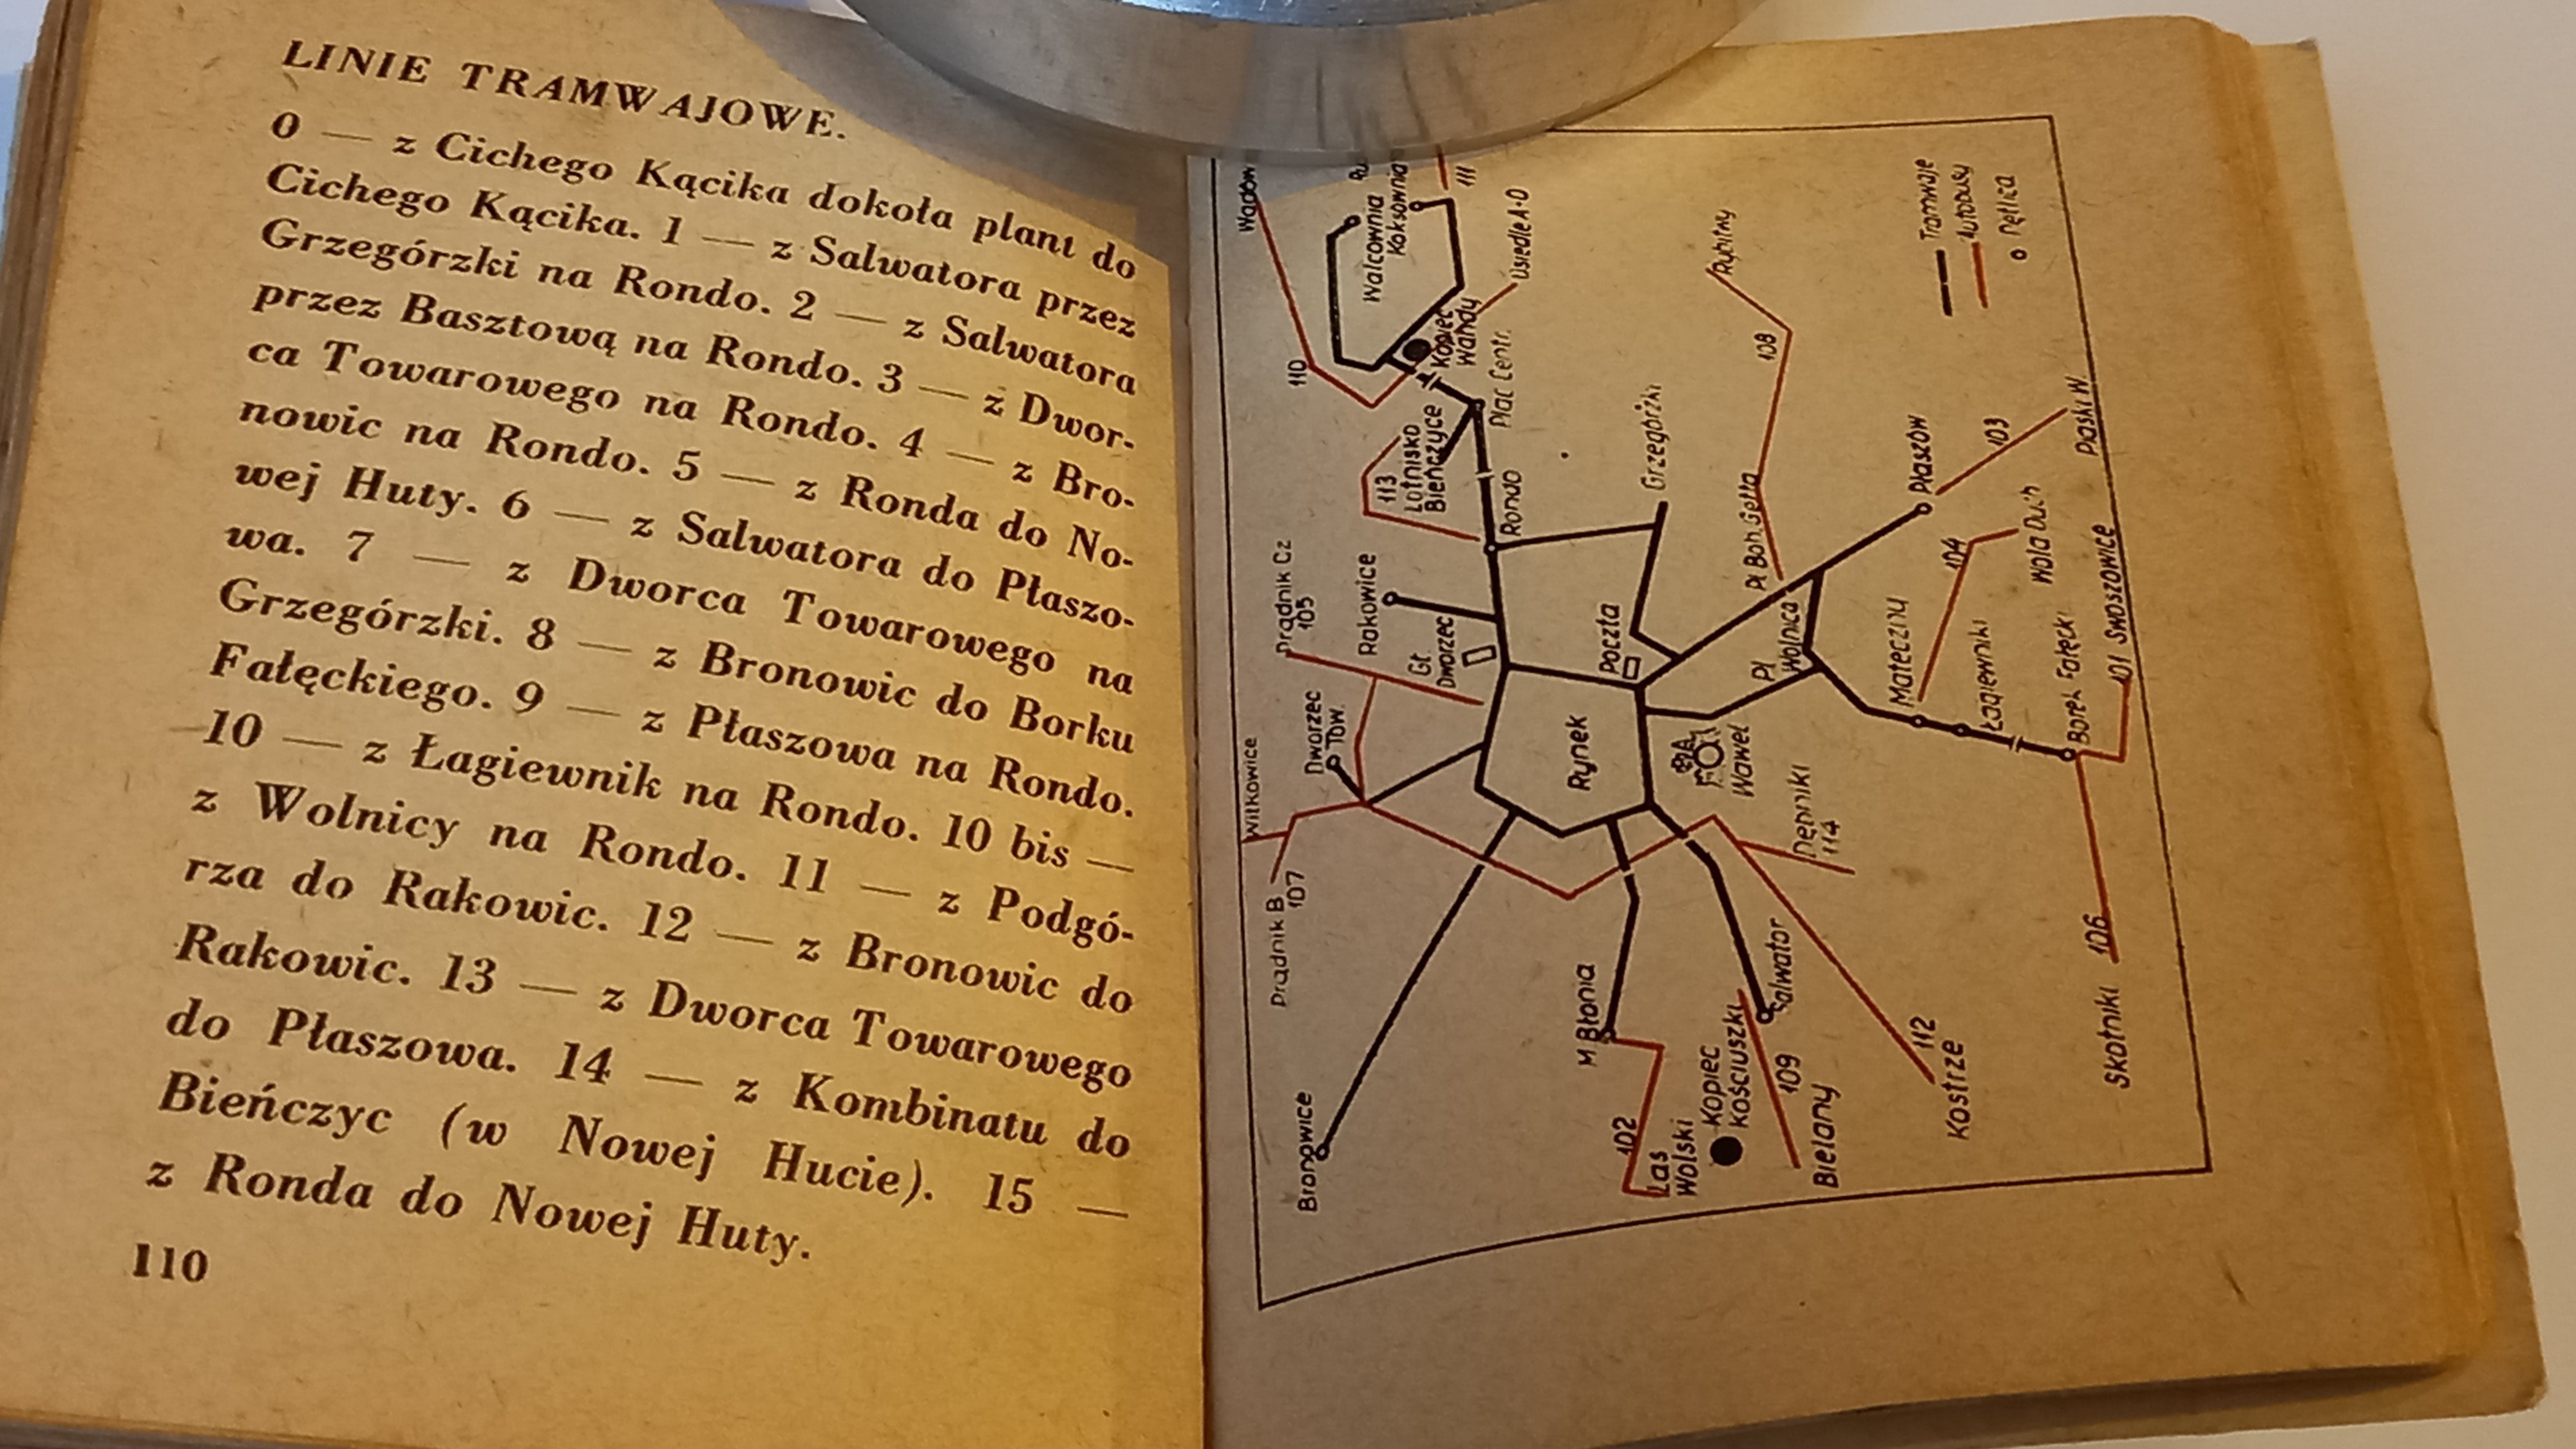 LINIE TRAMWAJOWE.
0 — z Cichego Kącika dokoła plant do
Cichego Kącika. 1 — z Salwatora przez
Grzegórzki na Rondo. 2 — z Salwatora
przez Basztową na Rondo. 3 — z Dwor-
ca Towarowego na Rondo. 4 — z Bro-
nowic na Rondo. 5 — z Ronda do No-
wej Huty. 6 — z Salwatora do Płaszo-
wa. 7 — z Dworca Towarowego na
Grzegórzki. 8 — z Bronowic do Borku
Fałęckiego. 9 — z Płaszowa na Rondo.
10 — z Łagiewnik na Rondo. 10 bis —
z Wolnicy na Rondo. 11 — z Podgó-
rza do Rakowic. 12 — z Bronowic do
Rakowic. 13 — z Dworca Towarowego
do Płaszowa. 14 — z Kombinatu do
Bieńczyc (w Nowej Hucie). 15 —
z Ronda do Nowej Huty.
110
Bronowice
Prądnik B
107
Witkowice
Dworzec
Tow.
Prądnik Cz
105
Rakowice
Gł.
Dworzec
113
Lotnisko
Bieńczyce
110
Wadów
Walcownia
Koksownia
111
Kopiec
Wandy
Osiedle A-0
Plac Centr.
Rondo
Grzegórzki
Poczta
Rynek
Wawel
M Błonia
102
Las
Wolski
Kopiec
Kościuszki
109
Bielany
Salwator
Dębniki
114
112
Kostrze
Pl
Wolnica
Pl Boh. Getta
108
Rybitwy
Płaszów
103
Piaski W
Mateczny
104
Wola Duch
Łagiewniki
Borek Fałęcki
101 Swoszowice
Skotniki 106
Tramwaje
Autobusy
Pętlica